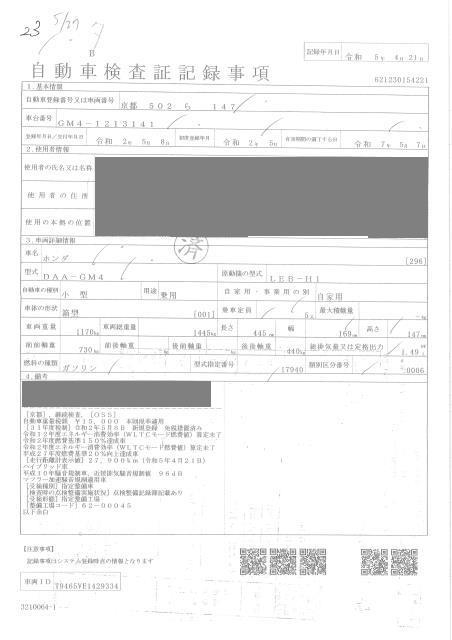 23 5/27 夕
B
記録年月日 令和 5年 4月21日
自動車検査証記録事項
621230154221
1.基本情報
自動車登録番号又は車両番号 京都 502 ら 147
車台番号 GM4-1213141
登録年月日/交付年月日 令和 2年 5月 8日 初度登録年月 令和 2年 5月 有効期間の満了する日 令和 7年 5月 7日
2.使用者情報
使用者の氏名又は名称
使用者の住所
使用の本拠の位置
済
3.車両詳細情報
車名 ホンダ [296]
型式 DAA-GM4 原動機の型式 LEB-H1
自動車の種別 小型 用途 乗用 自家用・事業用の別 自家用
車体の形状 箱型 [001] 乗車定員 5人 最大積載量 -kg
車両重量 1170kg 車両総重量 1445kg 長さ 445cm 幅 169cm 高さ 147cm
前前軸重 730kg 前後軸重 -kg 後前軸重 -kg 後後軸重 440kg 総排気量又は定格出力 1.49L
燃料の種類 ガソリン 型式指定番号 17940 類別区分番号 0006
4.備考
[京都],継続検査,[OSS]
自動車重量税額 ¥15,000 本則税率適用
[31年度税制]令和2年5月8日 新規登録 免税措置済み
令和12年度エネルギー消費効率(WLTCモード燃費値)算定未了
令和2年度燃費基準150%達成車
令和2年度エネルギー消費効率(WLTCモード燃費値)算定未了
平成27年度燃費基準20%向上達成車
[走行距離計表示値]27,900km(令和5年4月21日)
ハイブリッド車
平成10年騒音規制車、近接排気騒音規制値 96dB
マフラー加速騒音規制適用車
[受検種別]指定整備車
[検査時の点検整備実施状況]点検整備記録簿記載あり
[受検形態]指定整備工場
[整備工場コード]62-00045
以下余白
【注意事項】
記録事項はシステム登録時点の情報となります
車両ID T9465VE1429334
3210064-1